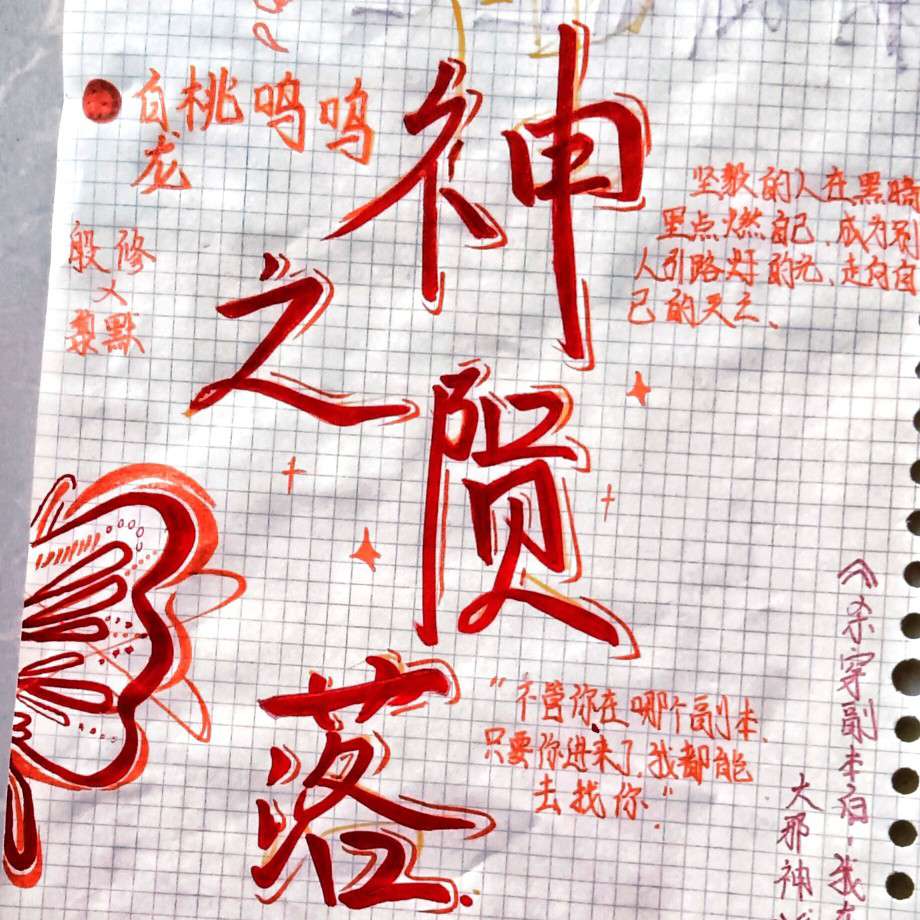 白桃呜呜
龙
殷修
×
黎默
神
之
陨
落
坚毅的人在黑暗
里点燃自己、成为别
人引路灯的光、走向自
己的灭亡、
“不管你在哪个副本、
只要你进来了，我都能
去找你。”
《杀穿副本后，我
大邪神